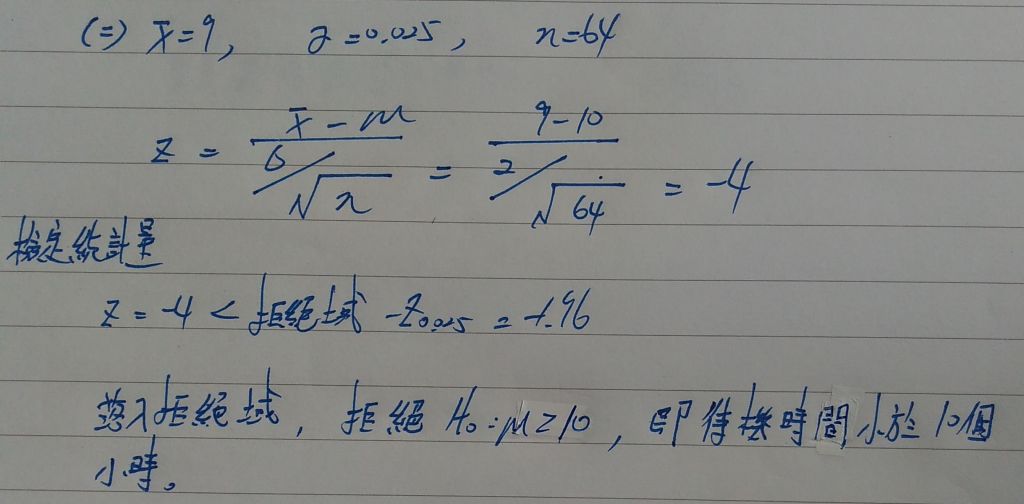 (二) x̄=9, α=0.025, n=64
z = (x̄-μ)/(σ/√n) = (9-10)/(2/√64) = -4
檢定統計量
z = -4 < 拒絕域 -Z0.025 = -1.96
落入拒絕域, 拒絕 H₀:μ≥10, 即待機時間小於10個
小時。